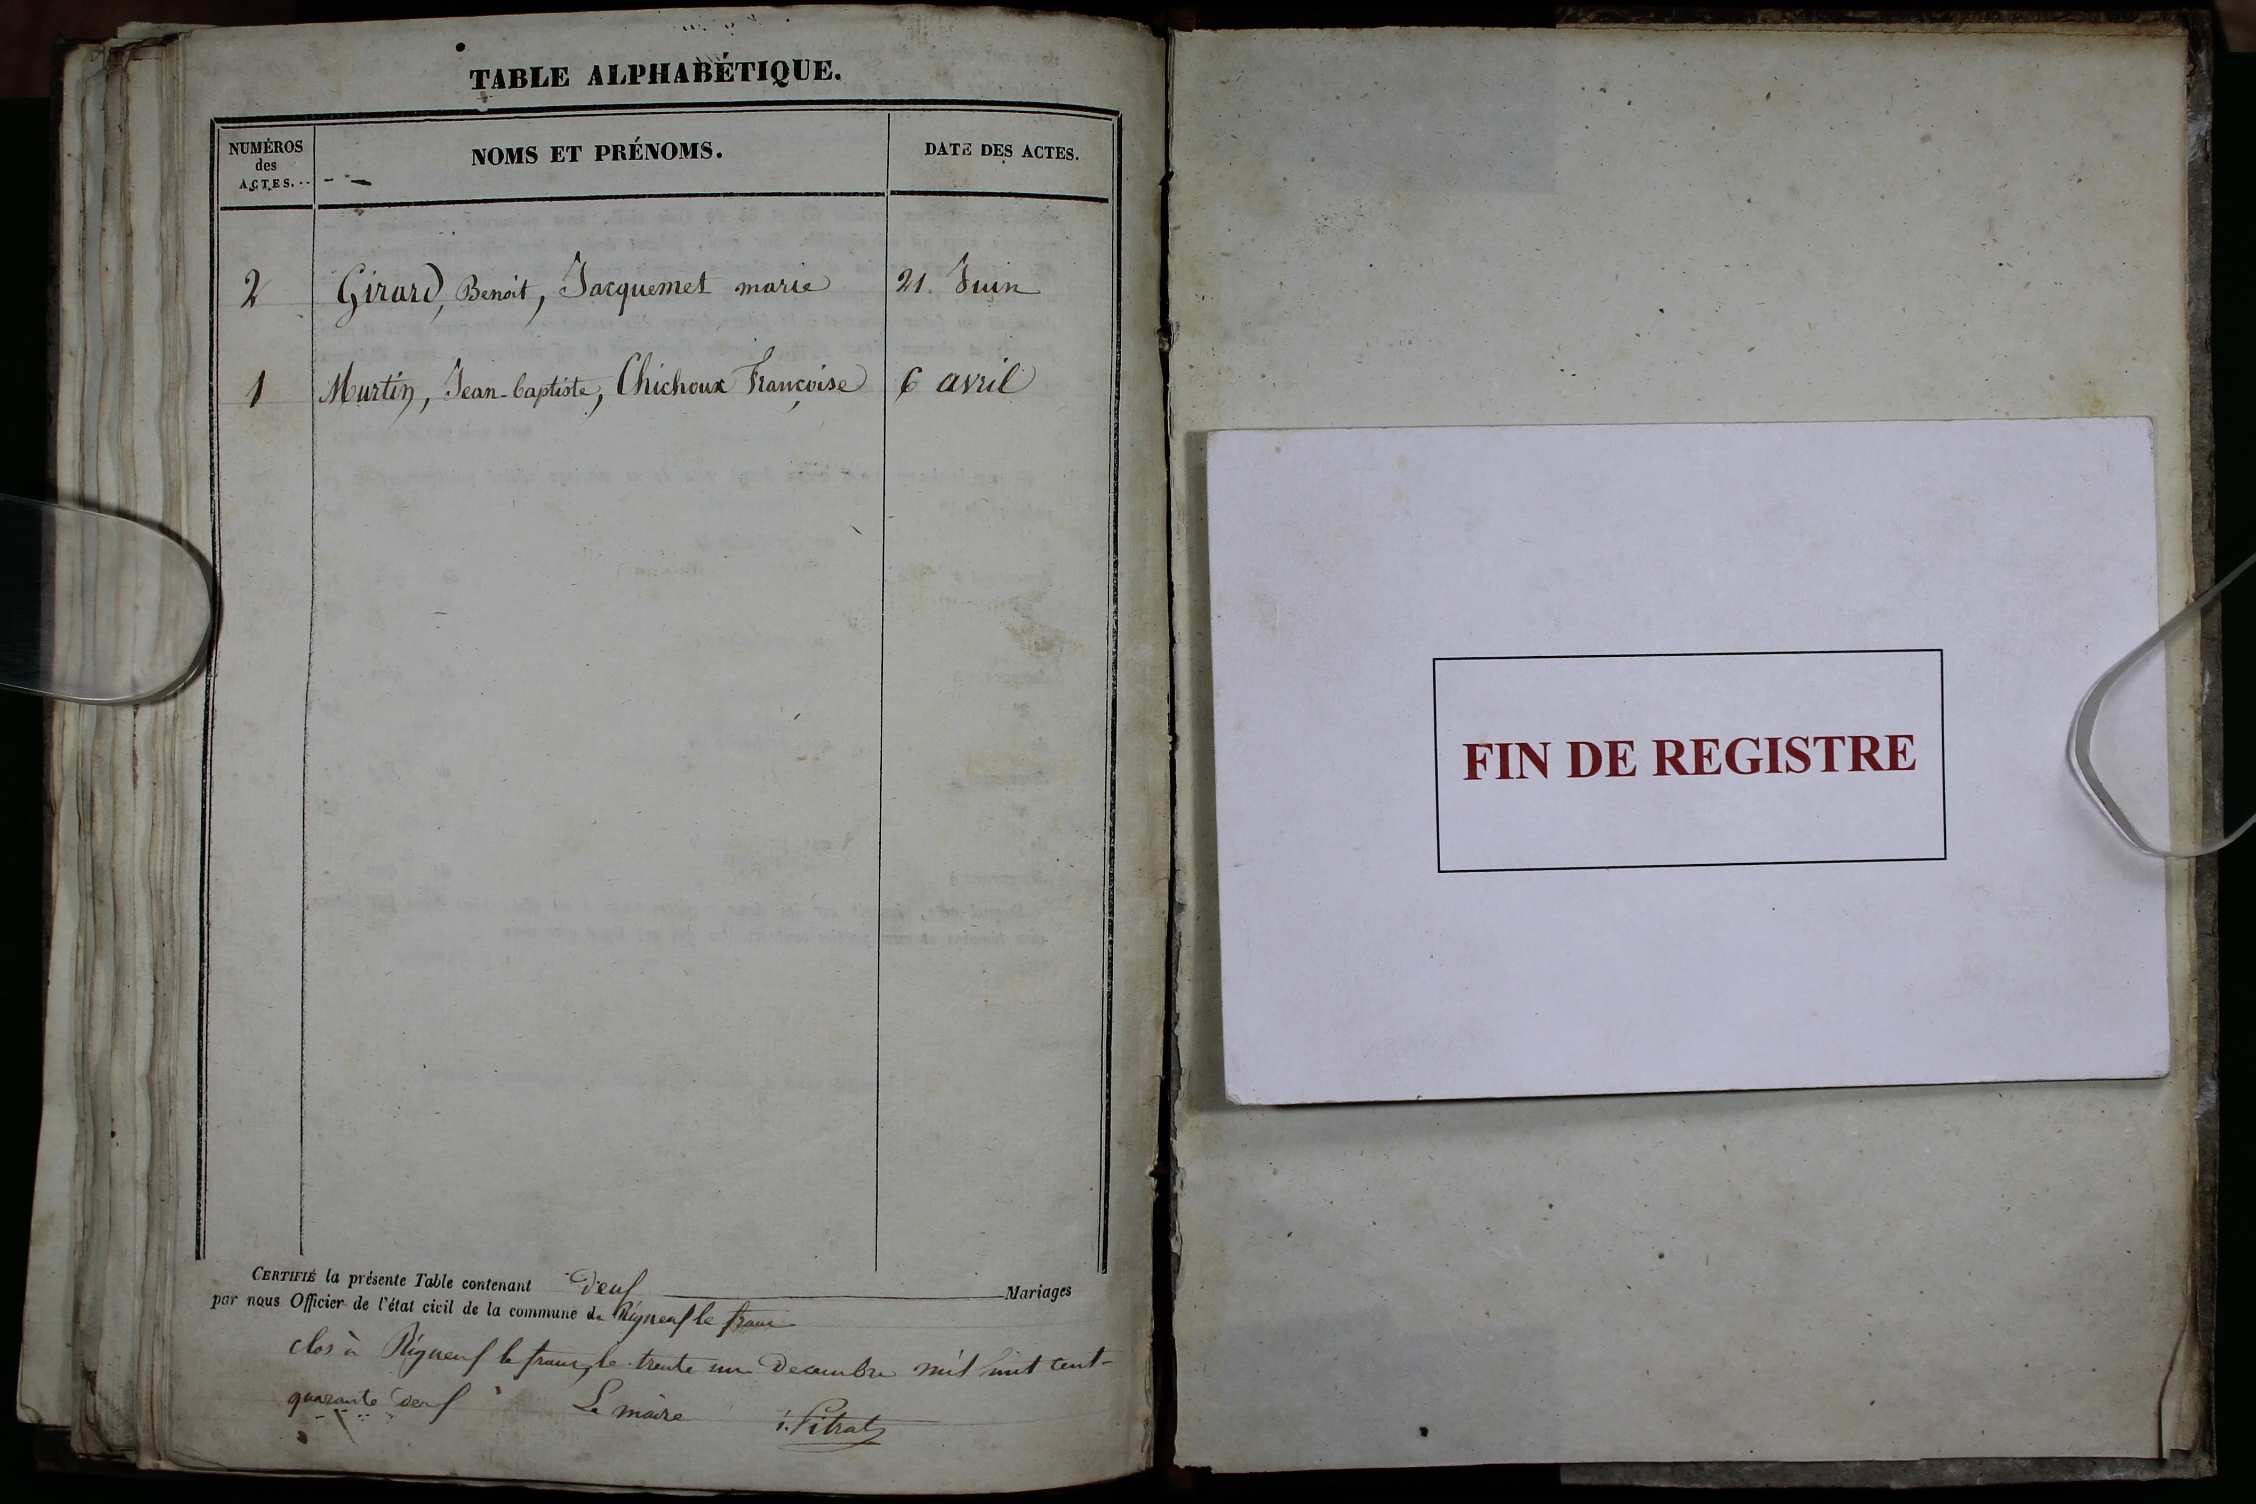 TABLE ALPHABÉTIQUE.
NUMÉROS
des
ACTES.
NOMS ET PRÉNOMS.
DATE DES ACTES.
2 Girard, Benoit, Jacquemet marie 21. Juin
1 Martin, Jean-baptiste, Chichoux Françoise 6 avril
CERTIFIÉ la présente Table contenant deux Mariages
par nous Officier de l'état cicil de la commune de Rigneux le franc
clos à Rigneux le franc, le trente un Decembre mil huit cent-
quarante deux Le maire Pitrat
FIN DE REGISTRE